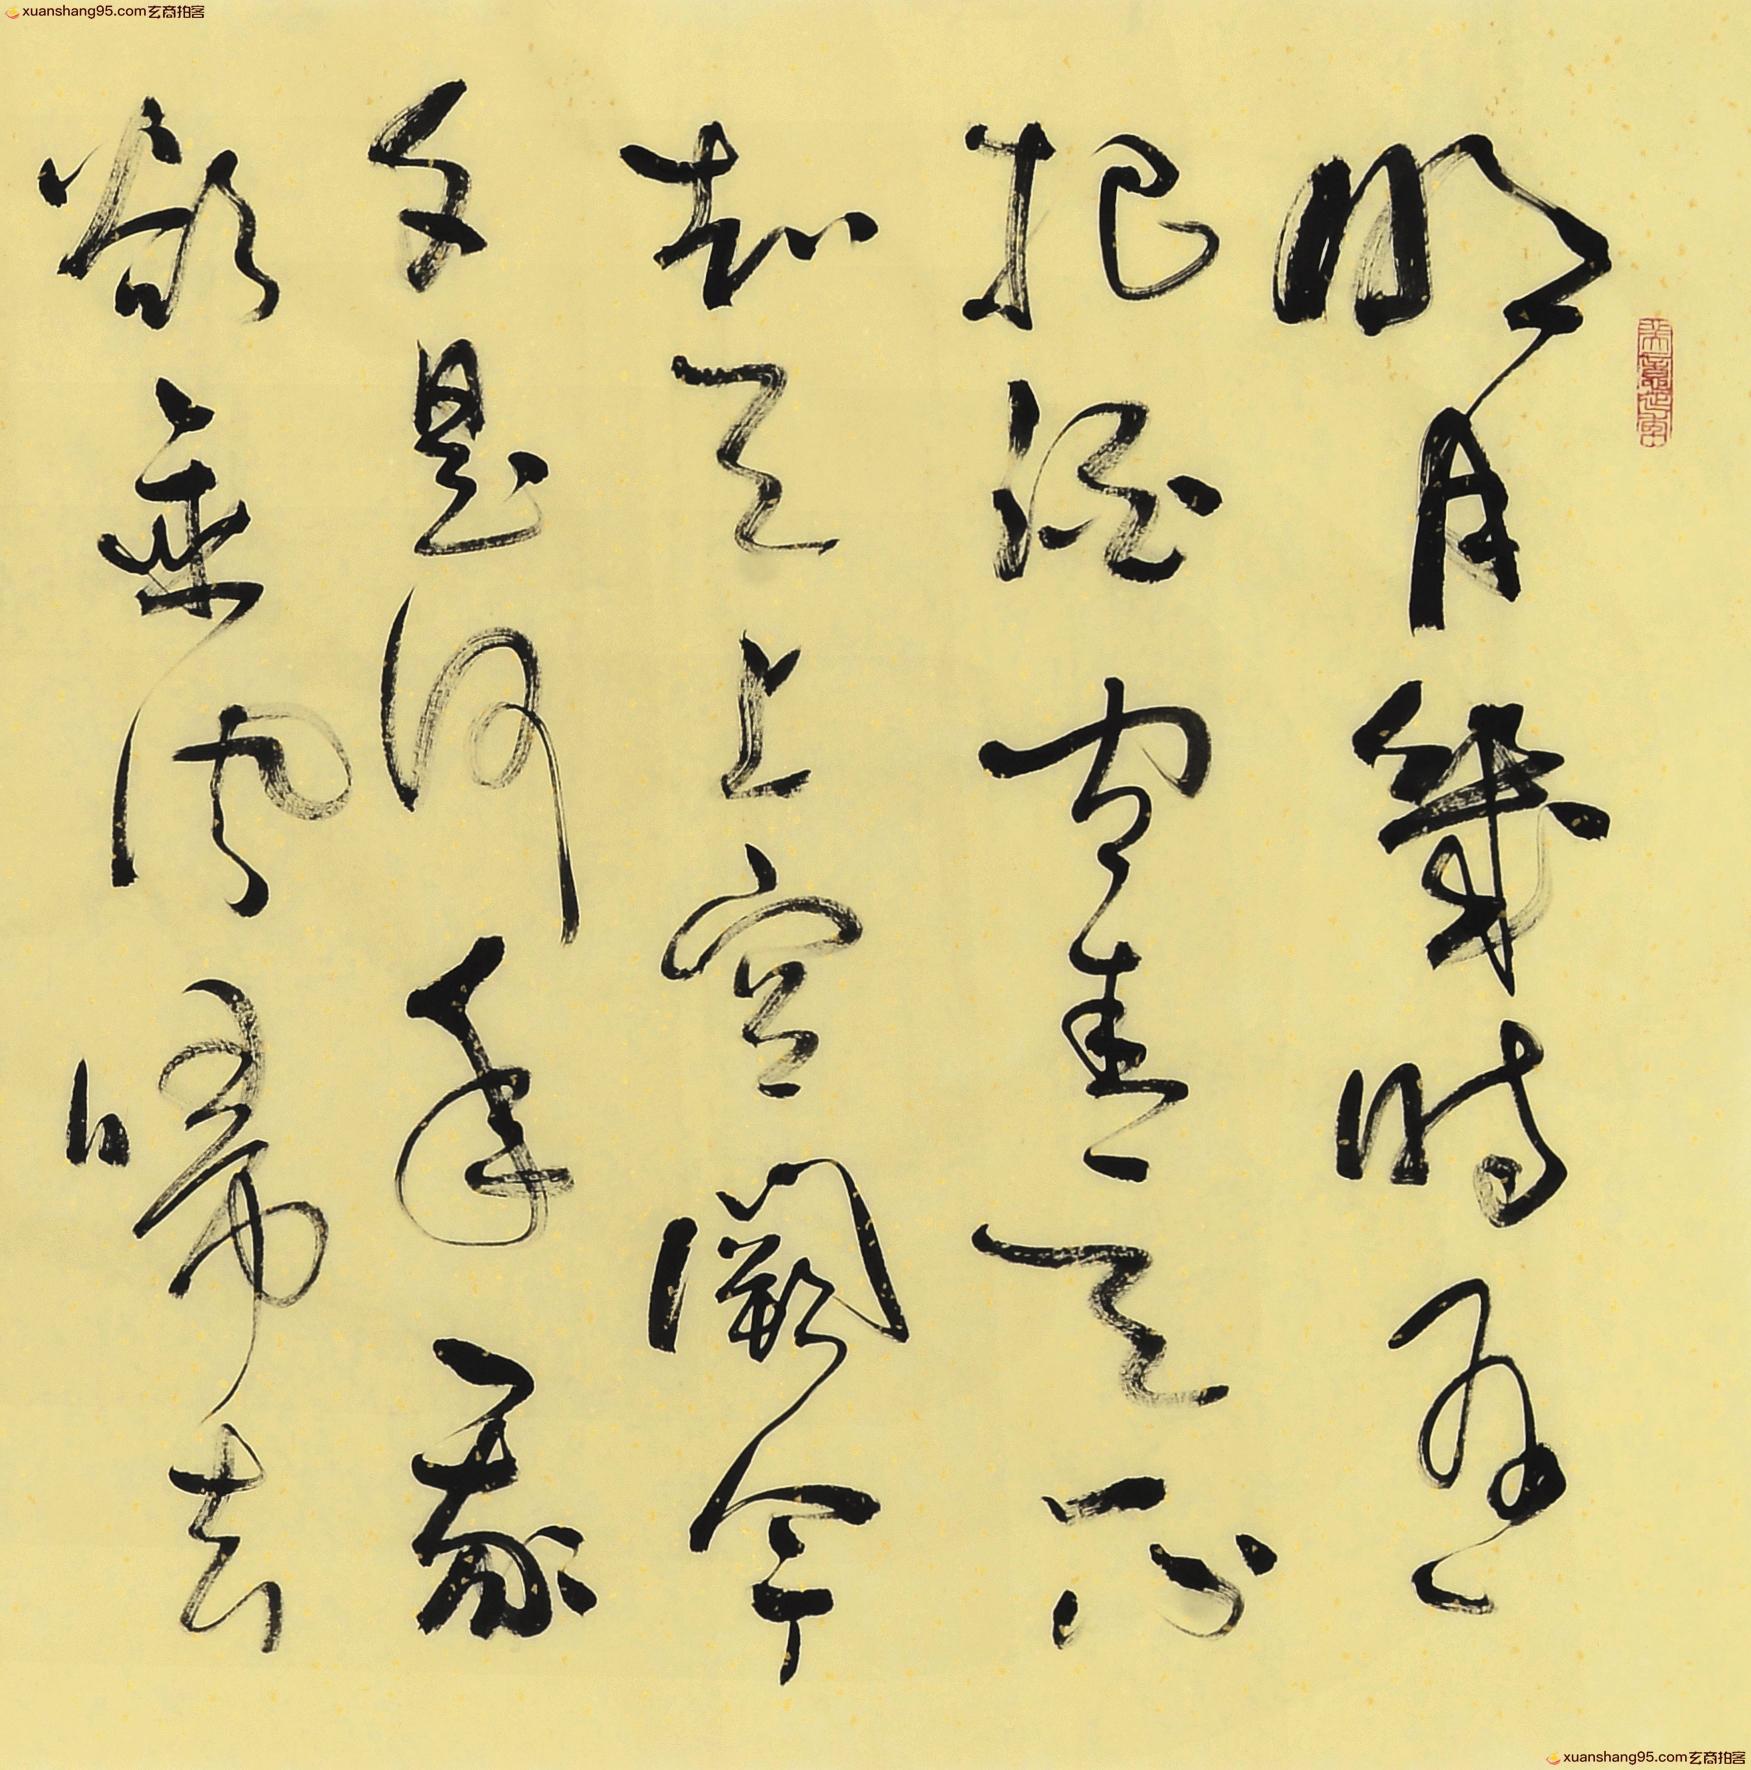 xuanshang95.com玄商拍客
明月幾時有
把酒問青天不
知天上宮闕今
夕是何年我
欲乘風歸去
xuanshang95.com玄商拍客